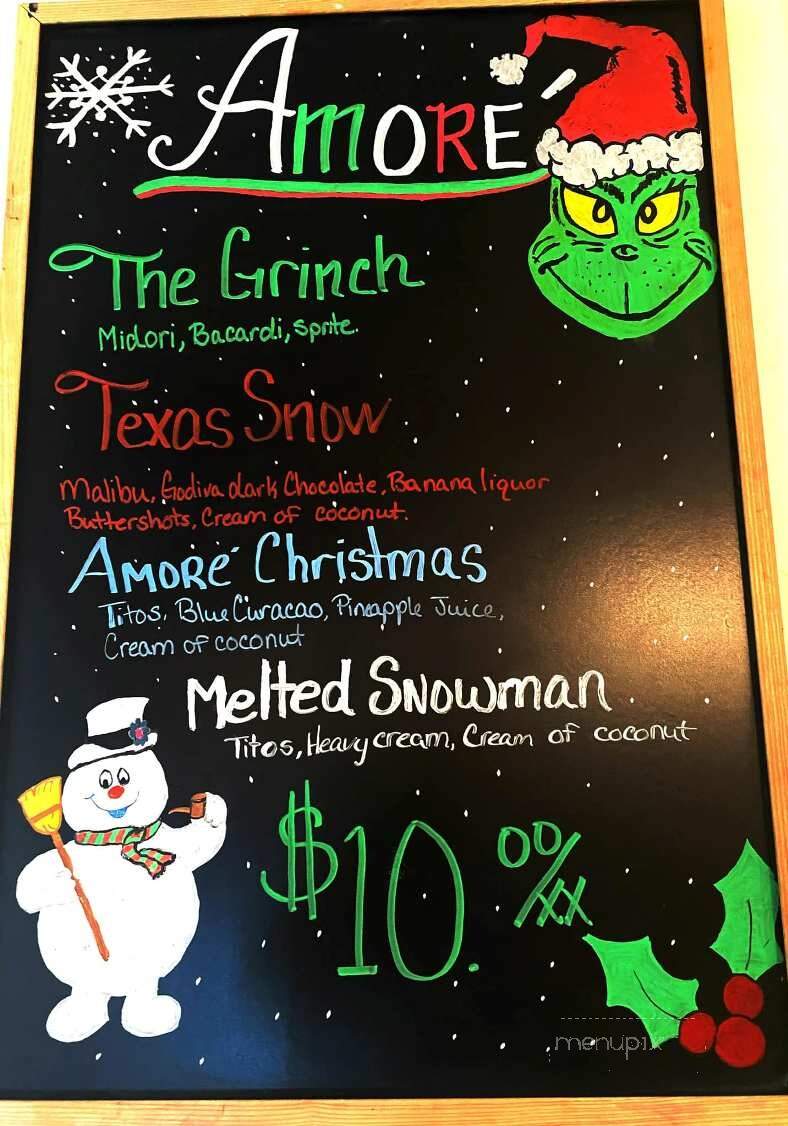 Amoré
The Grinch
Midori, Bacardi, Sprite.
Texas Snow
Malibu, Godiva dark Chocolate, Banana liquor
Buttershots, Cream of coconut.
Amoré Christmas
Titos, Blue Curacao, Pineapple Juice,
Cream of coconut
Melted Snowman
Titos, Heavy cream, Cream of coconut
$10. 00/xx
menupix